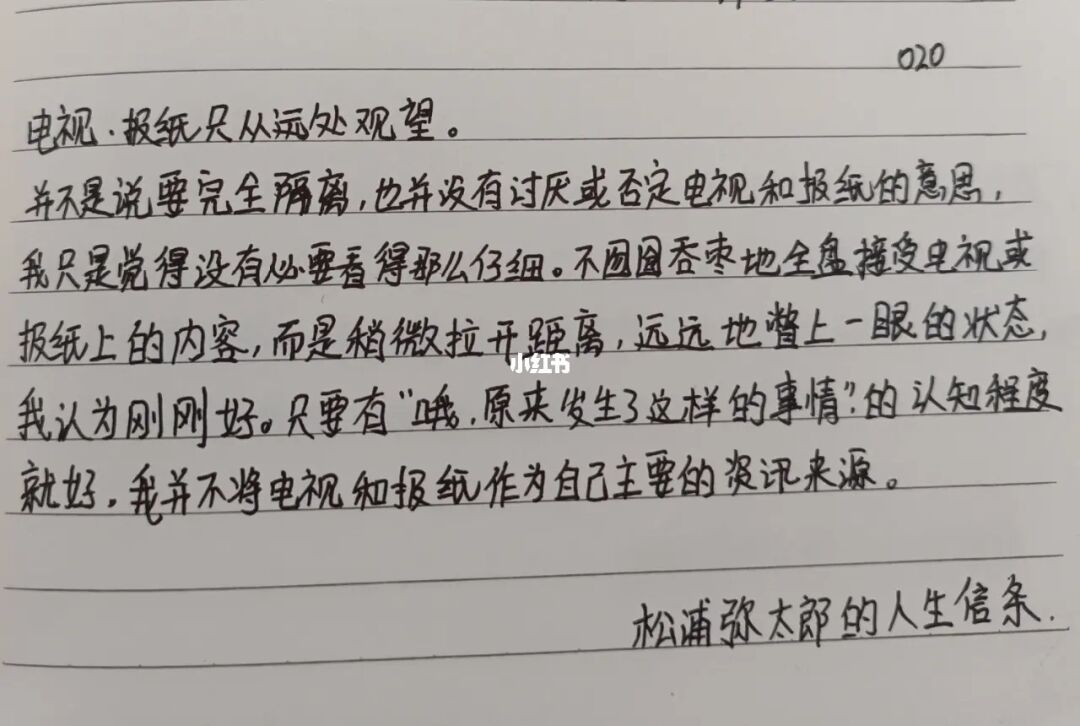 020
电视·报纸只从远处观望。
并不是说要完全隔离,也并没有讨厌或否定电视和报纸的意思,
我只是觉得没有必要看得那么仔细。不囫囵吞枣地全盘接受电视或
报纸上的内容,而是稍微拉开距离,远远地瞥上一眼的状态,
小红书
我认为刚刚好。只要有“哦,原来发生了这样的事情”的认知程度
就好,我并不将电视和报纸作为自己主要的资讯来源。
松浦弥太郎的人生信条.